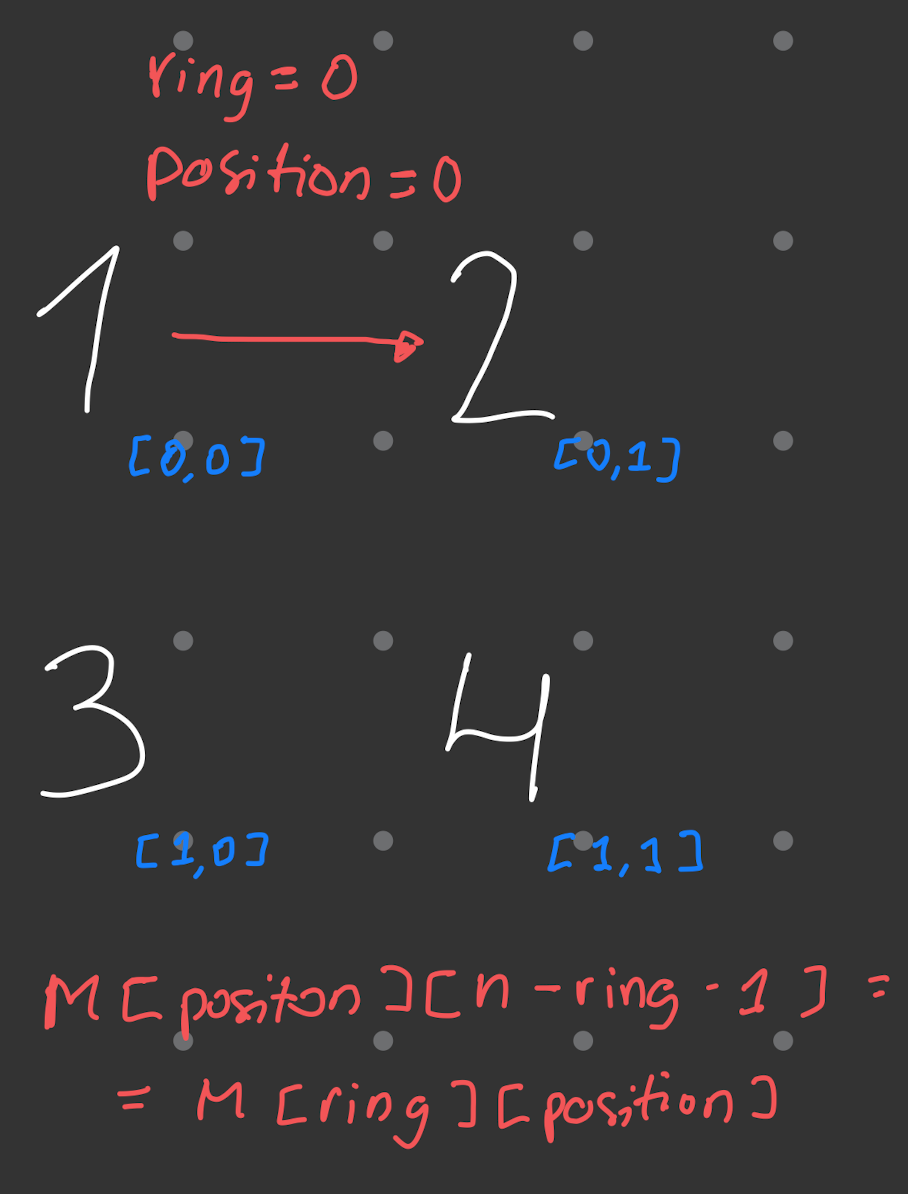 ring = 0
Position = 0
1 → 2
[0,0] [0,1]
3 4
[1,0] [1,1]
M[positon][n - ring - 1] =
= M[ring][position]